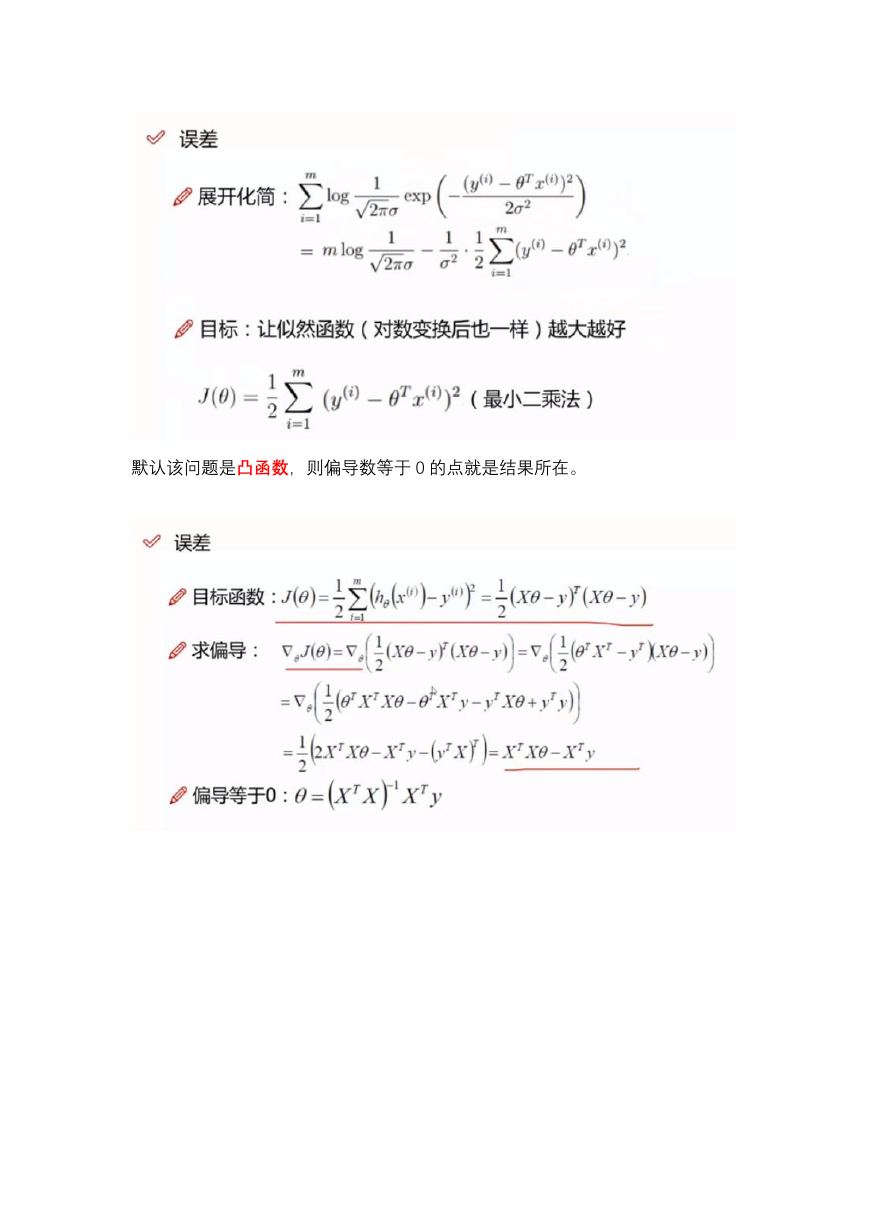 误差
展开化简：$\sum_{i=1}^{m} \log \frac{1}{\sqrt{2\pi}\sigma} \exp\left(-\frac{(y^{(i)} - \theta^T x^{(i)})^2}{2\sigma^2}\right)$
$= m \log \frac{1}{\sqrt{2\pi}\sigma} - \frac{1}{\sigma^2} \cdot \frac{1}{2} \sum_{i=1}^{m} (y^{(i)} - \theta^T x^{(i)})^2$
目标：让似然函数（对数变换后也一样）越大越好
$J(\theta) = \frac{1}{2} \sum_{i=1}^{m} (y^{(i)} - \theta^T x^{(i)})^2$（最小二乘法）
默认该问题是凸函数，则偏导数等于 0 的点就是结果所在。
误差
目标函数：$J(\theta) = \frac{1}{2} \sum_{i=1}^{m} (h_\theta(x^{(i)}) - y^{(i)})^2 = \frac{1}{2} (X\theta - y)^T (X\theta - y)$
求偏导：$\nabla_\theta J(\theta) = \nabla_\theta \left(\frac{1}{2} (X\theta - y)^T (X\theta - y)\right) = \nabla_\theta \left(\frac{1}{2} (\theta^T X^T - y^T)(X\theta - y)\right)$
$= \nabla_\theta \left(\frac{1}{2} (\theta^T X^T X\theta - \theta^T X^T y - y^T X\theta + y^T y)\right)$
$= \frac{1}{2} \left(2X^T X\theta - X^T y - (y^T X)^T\right) = X^T X\theta - X^T y$
偏导等于0：$\theta = (X^T X)^{-1} X^T y$